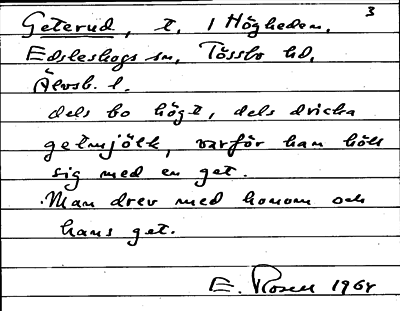 3
Geterud, t. 1 Högheden,
Edsleskogs sn, Tössbo hd,
Älvsb. l.
dels bo högt, dels dricka
getmjölk, varför han höll
sig med en get.
Man drev med honom och
hans get.
E. Rosell 1964